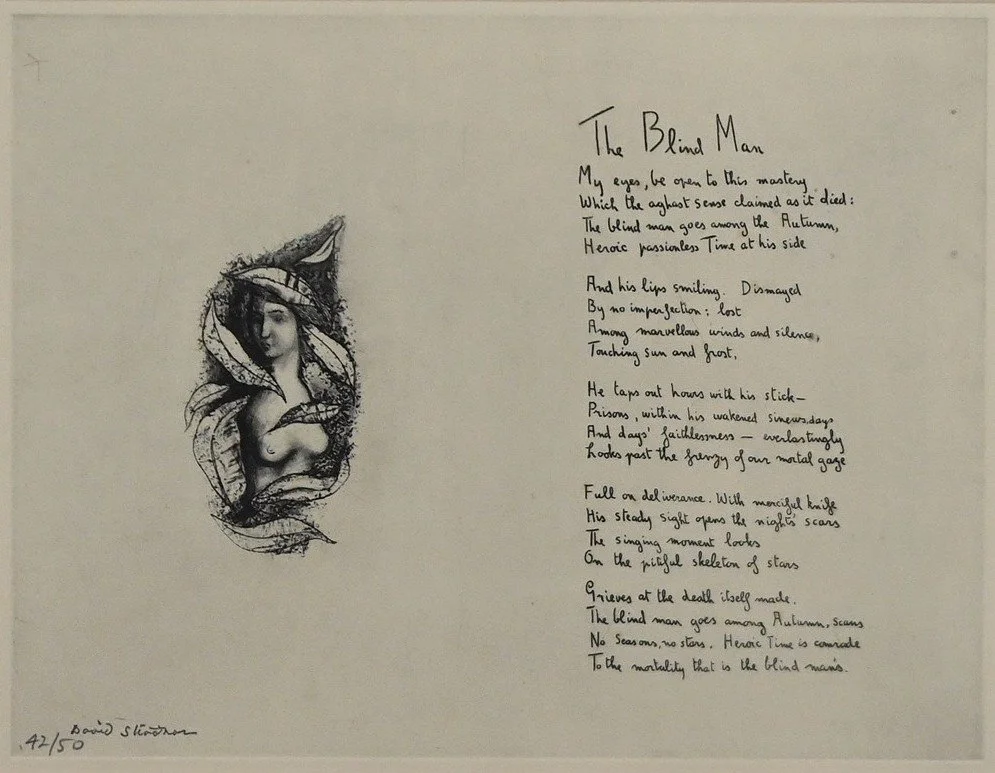 The Blind Man
My eyes, be open to this mastery
Which the aghast sense claimed as it died:
The blind man goes among the Autumn,
Heroic passionless Time at his side
And his lips smiling. Dismayed
By no imperfection: lost
Among marvellous winds and silence,
Touching sun and frost,
He taps out hours with his stick—
Prisons, within his wakened sinews, days
And days' faithlessness — everlastingly
Looks past the frenzy of our mortal gaze
Full on deliverance. With merciful knife
His steady sight opens the night's scars
The singing moment looks
On the pitiful skeleton of stars
Grieves at the death itself made.
The blind man goes among Autumn, scans
No Seasons, no stars. Heroic Time is comrade
To the mortality that is the blind man's.
42/50
David